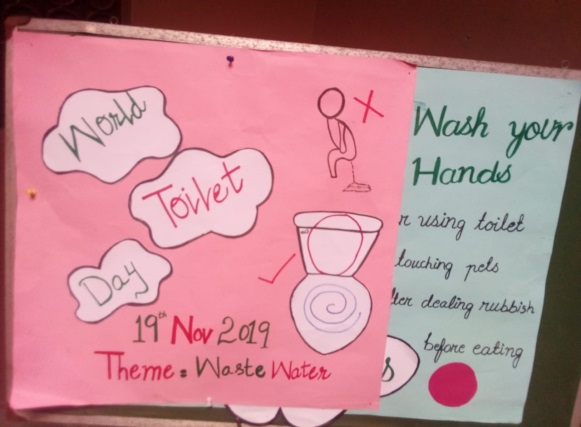 World
Toilet
Day
19th Nov 2019
Theme : Waste Water
Wash your
Hands
using toilet
touching pets
dealing rubbish
before eating